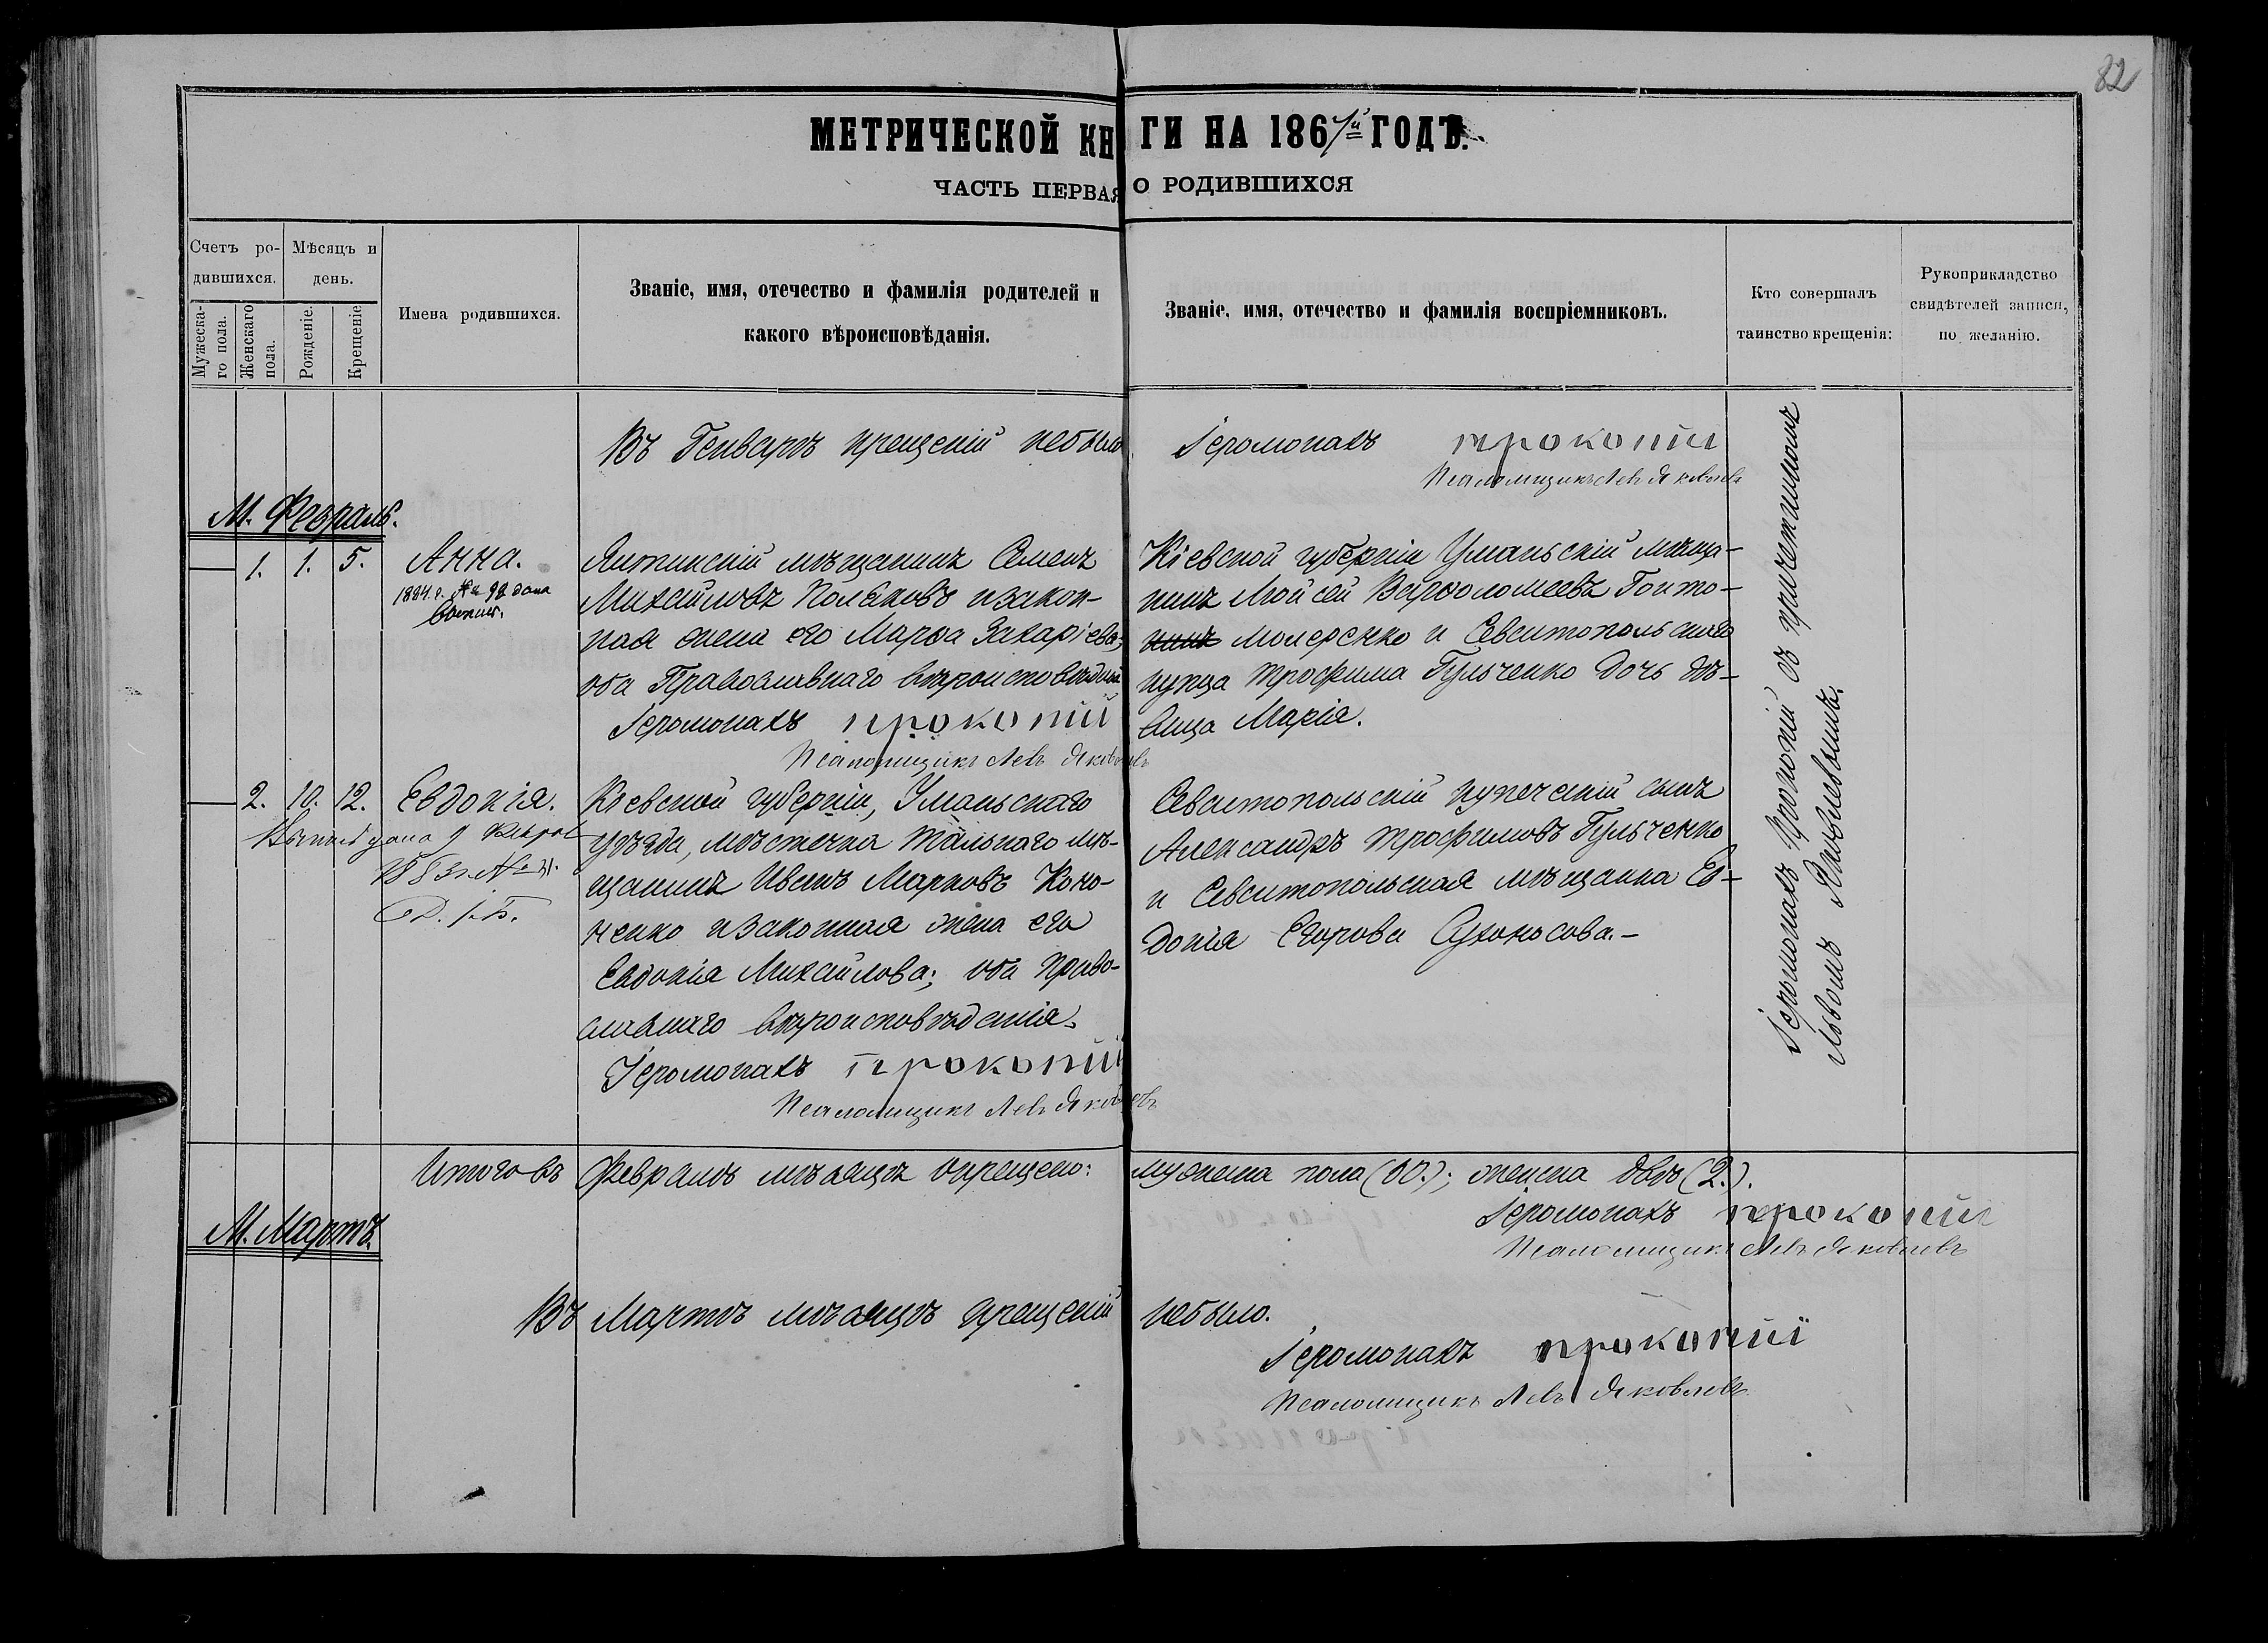 82
МЕТРИЧЕСКОЙ КНИГИ НА 1867й ГОДЪ.
ЧАСТЬ ПЕРВАЯ О РОДИВШИХСЯ
Счетъ ро-
дившихся.
Мужеска-
го пола.
Женскаго
пола.
Мѣсяцъ и
день.
Рожденіе.
Крещеніе
Имена родившихся.
Званіе, имя, отечество и фамилія родителей и
какого вѣроисповѣданія.
Званіе, имя, отечество и фамилія воспріемниковъ.
Кто совершалъ
таинство крещенія:
Рукоприкладство
свидѣтелей записи,
по желанію.
Въ Генварѣ крещеній небыло
Іеромонахъ Прокопій
Псаломщикъ Левъ Яковлевъ
М. Февраль.
1. 1. 5. Анна.
1884 г. № 98 дана
Ялтинскій мѣщанинъ Семенъ
Михайловъ Поляковъ изакон-
ная жена его Марѳа Захаріева,
оба Православнаго вѣроисповѣданія
Іеромонахъ Прокопій
Псаломщикъ Левъ Яковлевъ
Кіевской губерніи Уманьскій мѣща-
нинъ Мойсей Варѳоломеевъ
Молеренко и Севастопольскаго
купца Трофима Гульченко дочь дѣ-
вица Марія.
2. 10. 12. Евдокія.
дана
Кіевской губерніи, Уманьскаго
уѣзда, мѣстечка Тальнаго мѣ-
щанинъ Иванъ Марковъ Коно-
ненко изаконная жена его
Евдокія Михайлова; оба право-
славнаго вѣроисповѣданія.
Іеромонахъ Прокопій
Псаломщикъ Левъ Яковлевъ
Севастопольскій купеческій сынъ
Александръ Трофимовъ Гульченко
и Севастопольская мѣщанка Ев-
докія Егорова Сухоносова.-
Іеромонахъ Прокопій съ причетникомъ
Львомъ Яковлевымъ.
Итого въ Февралѣ мѣсяцѣ окрещено: мужеска пола (00.); женска двѣ (2.).
Іеромонахъ Прокопій
Псаломщикъ Левъ Яковлевъ
М. Мартъ.
Въ Мартѣ мѣсяцѣ крещеній небыло.
Іеромонахъ Прокопій
Псаломщикъ Левъ Яковлевъ